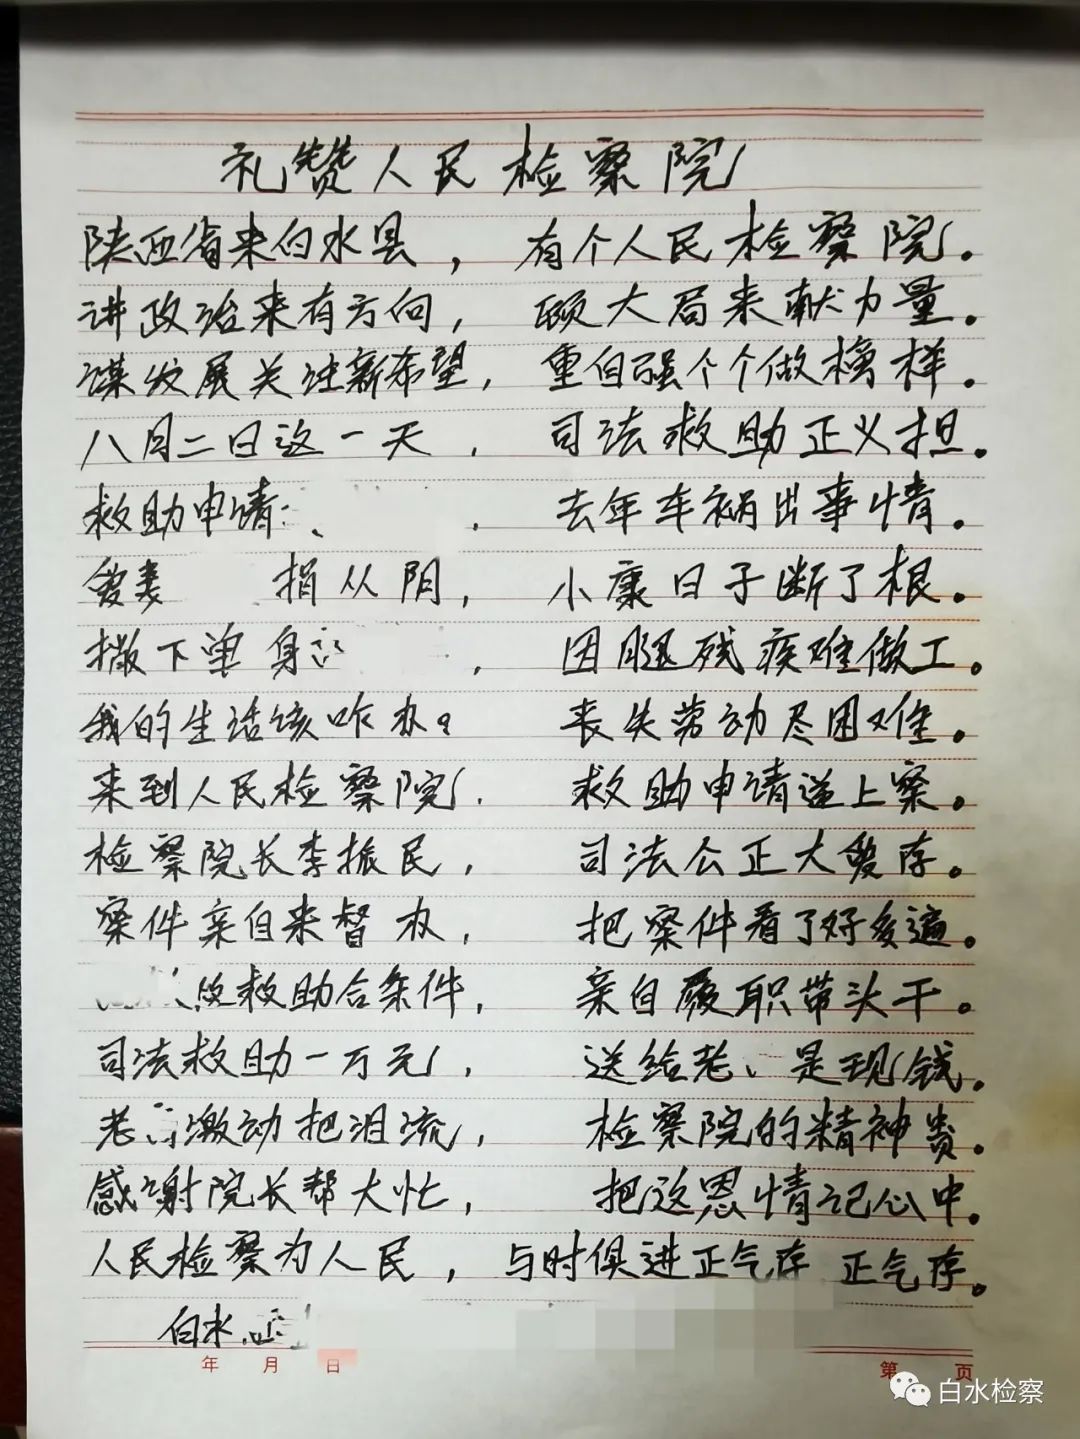 礼赞人民检察院
陕西省来白水县，有个人民检察院。
讲政治来有方向，顾大局来献力量。
谋发展关注新希望，重自强个个做榜样。
八月二日这一天，司法救助正义担。
救助申请：，去年车祸出事情。
爱妻 捐从阴，小康日子断了根。
撒下单身，因腿残疾难做工。
我的生活该咋办？丧失劳动尽困难。
来到人民检察院，救助申请递上案。
检察院长李振民，司法公正大爱存。
案件亲自来督办，把案件看了好多遍。
救助合条件，亲自履职带头干。
司法救助一万元，送给老 是现钱。
老 激动把泪流，检察院的精神贵。
感谢院长帮大忙，把这恩情记心中。
人民检察为人民，与时俱进正气存 正气存。
白水
年 月 日 第 页
白水检察